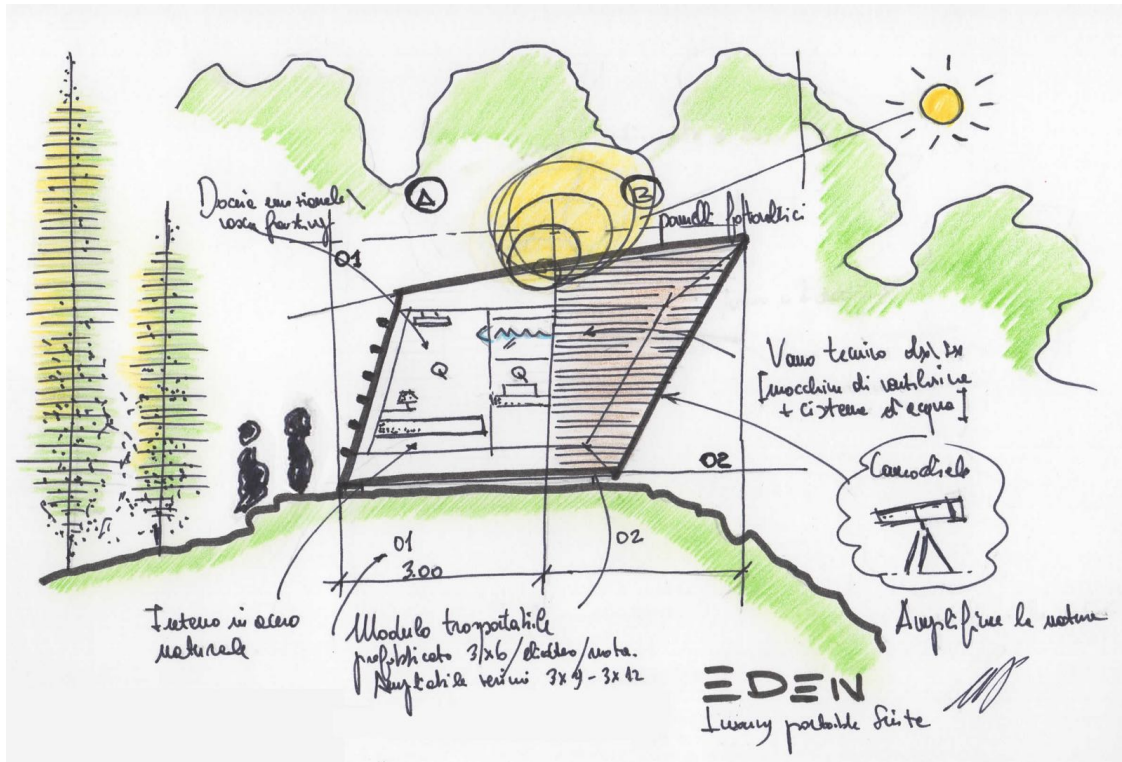 Doccia emozionale
A
B
pannelli fotovoltaici
01
Q
Q
Vano tecnico
[macchine di ventilazione
+ cisterna d'acqua]
02
Cannocchiale
01
02
3.00
Interno in acero
naturale
Modulo trasportabile
prefabbricato 3x6
Ampliabile 3x9 - 3x12
Amplificare la natura
EDEN
Luxury portable Suite